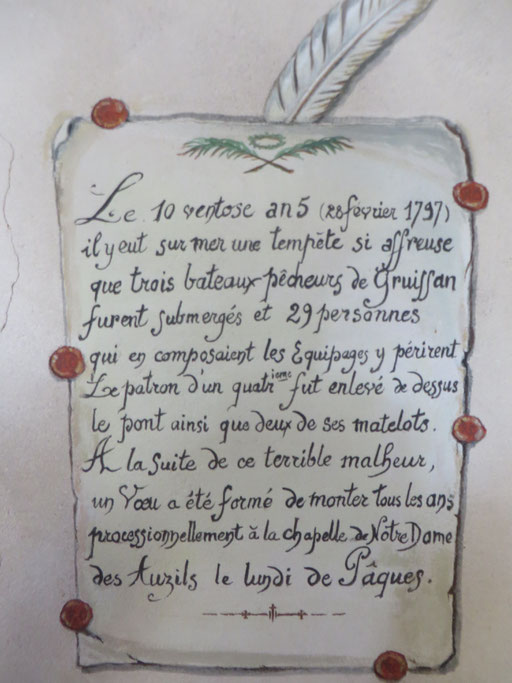 Le 10 ventose an 5 (28 février 1797)
il y eut sur mer une tempête si affreuse
que trois bateaux pêcheurs de Gruissan
furent submergés et 29 personnes
qui en composaient les Equipages y périrent
Le patron d'un quatrieme fut enlevé de dessus
le pont ainsi que deux de ses matelots.
A la suite de ce terrible malheur,
un Voeu a été formé de monter tous les ans
processionnellement à la chapelle de Notre Dame
des Auzils le lundi de Pâques.